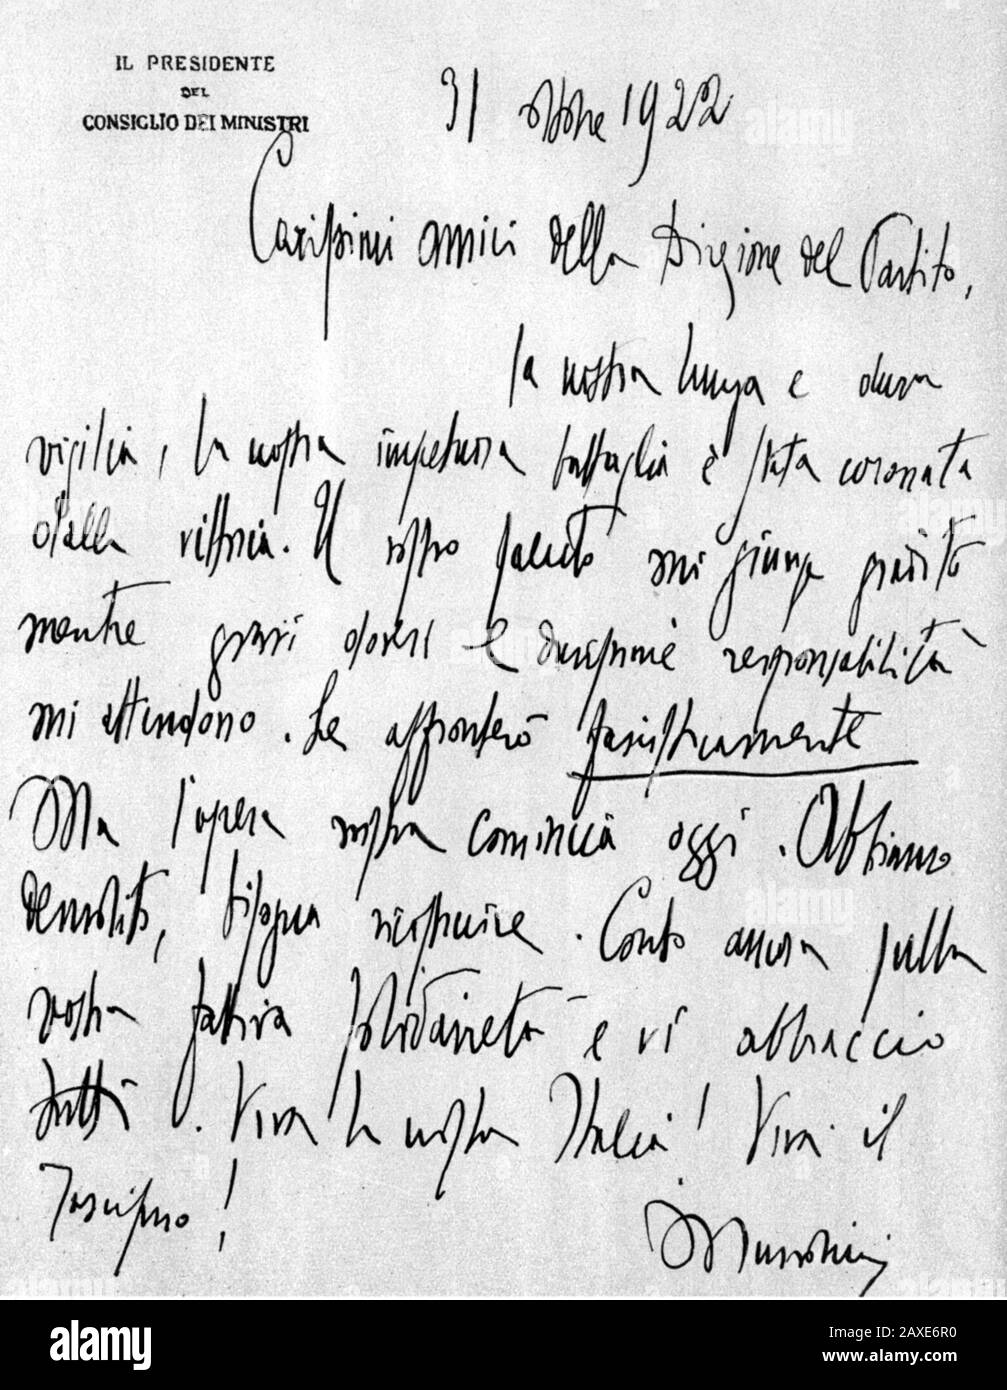 IL PRESIDENTE
DEL
CONSIGLIO DEI MINISTRI
31 ottobre 1922
Carissimi amici della Direzione del Partito,
la nostra lunga e dura
vigilia, la nostra impetuosa battaglia è stata coronata
dalla vittoria. Il vostro saluto mi giunge gradito
mentre gravi doveri e decisioni e responsabilità
mi attendono. Le affronterò fascisticamente
Ma l'opera nostra comincia oggi. Abbiamo
demolito, bisogna ricostruire. Conto ancora sulla
vostra fattiva solidarietà e vi abbraccio
tutti. Viva la nostra Italia! Viva il
Fascismo!
Mussolini
alamy
Image ID: 2AXE6R0
www.alamy.com